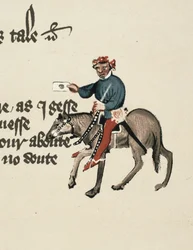 s tale
e, as I gesse
nesse
our aboute
no doute